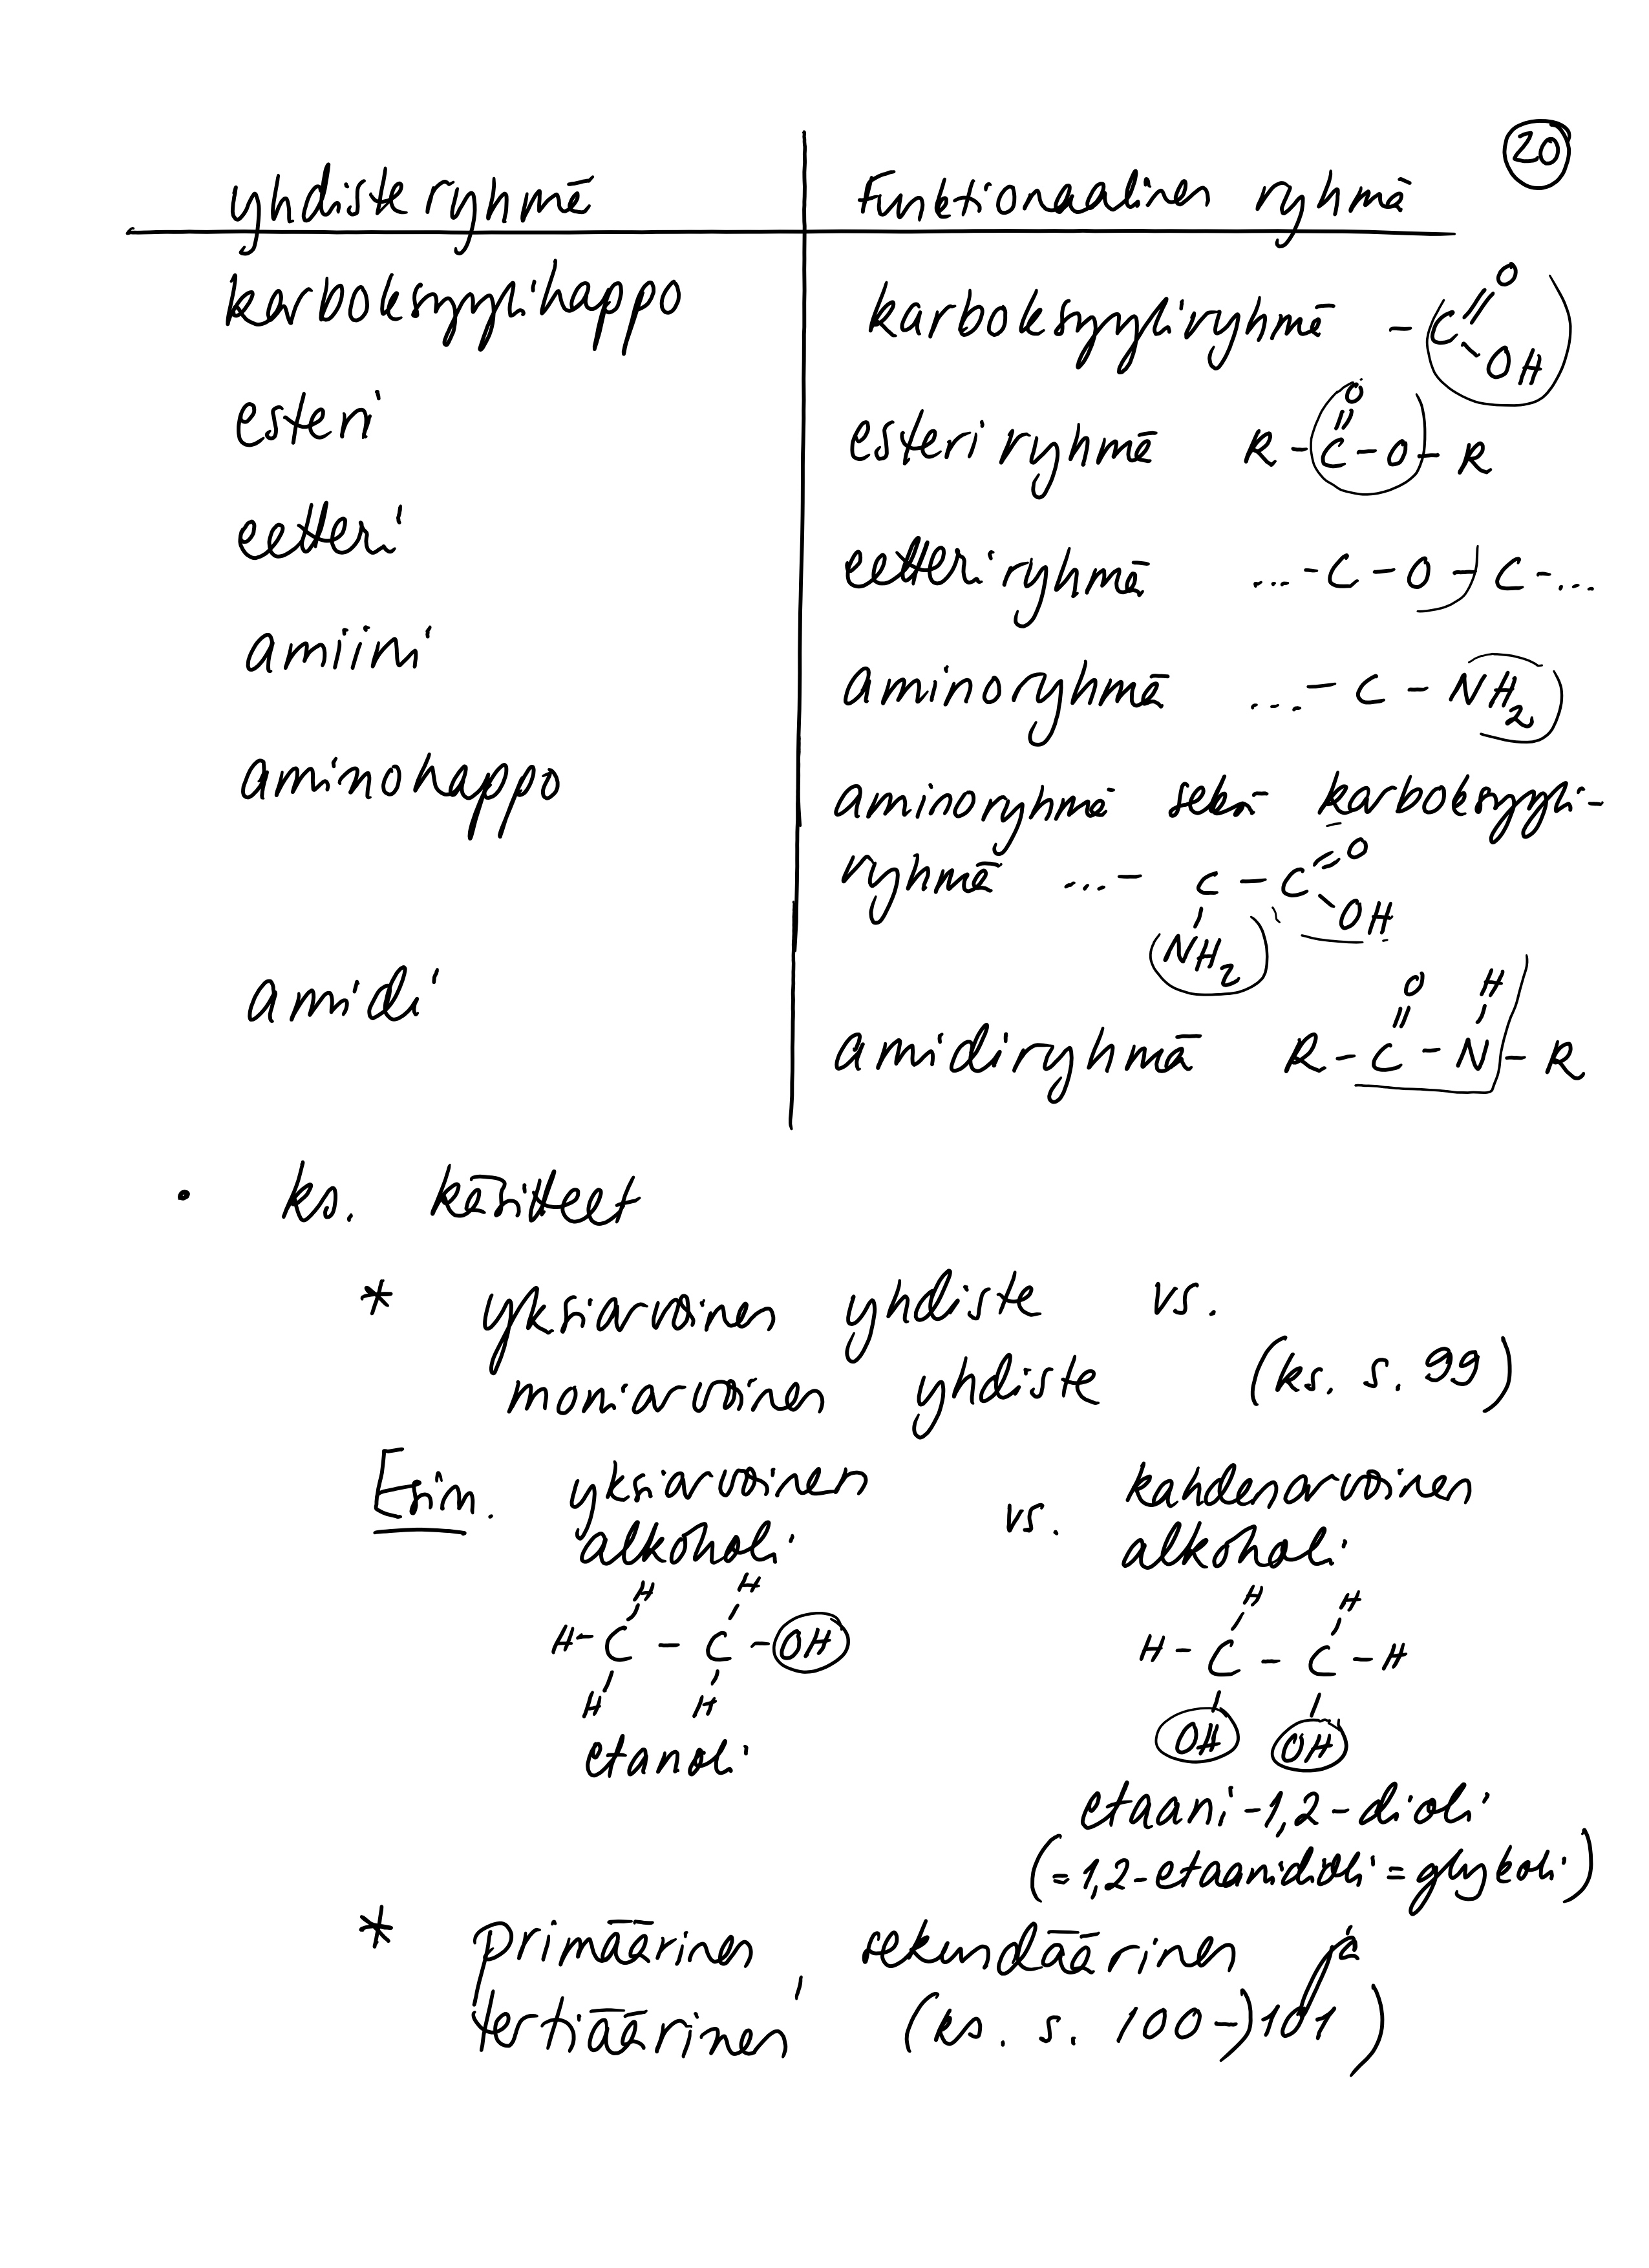 20
yhdisteryhmä funktionaalinen ryhmä
karboksyylihappo karboksyyliryhmä -C=O
-OH
esteri esteriryhmä R-C(=O)-O-R
eetteri eetteriryhmä ...-C-O-C-...
amiini aminoryhmä ...-C-NH₂
aminohappo aminoryhmä sekä karboksyyli-
ryhmä ...- C - C=O
-OH
NH₂
O H
amidi amidiryhmä R-C-N-R
• ks. käsitteet
* yksiarvoinen yhdiste vs.
moniarvoinen yhdiste (ks. s. 99)
Esim. yksiarvoinen vs. kahdenarvoinen
alkoholi alkoholi
H H H H
H-C-C-OH H-C-C-H
H H OH OH
etanoli
etaani-1,2-dioli
(=1,2-etaanidioli=glykoli)
* primäärinen, sekundäärinen ja
tertiäärinen (ks. s. 100-)101)